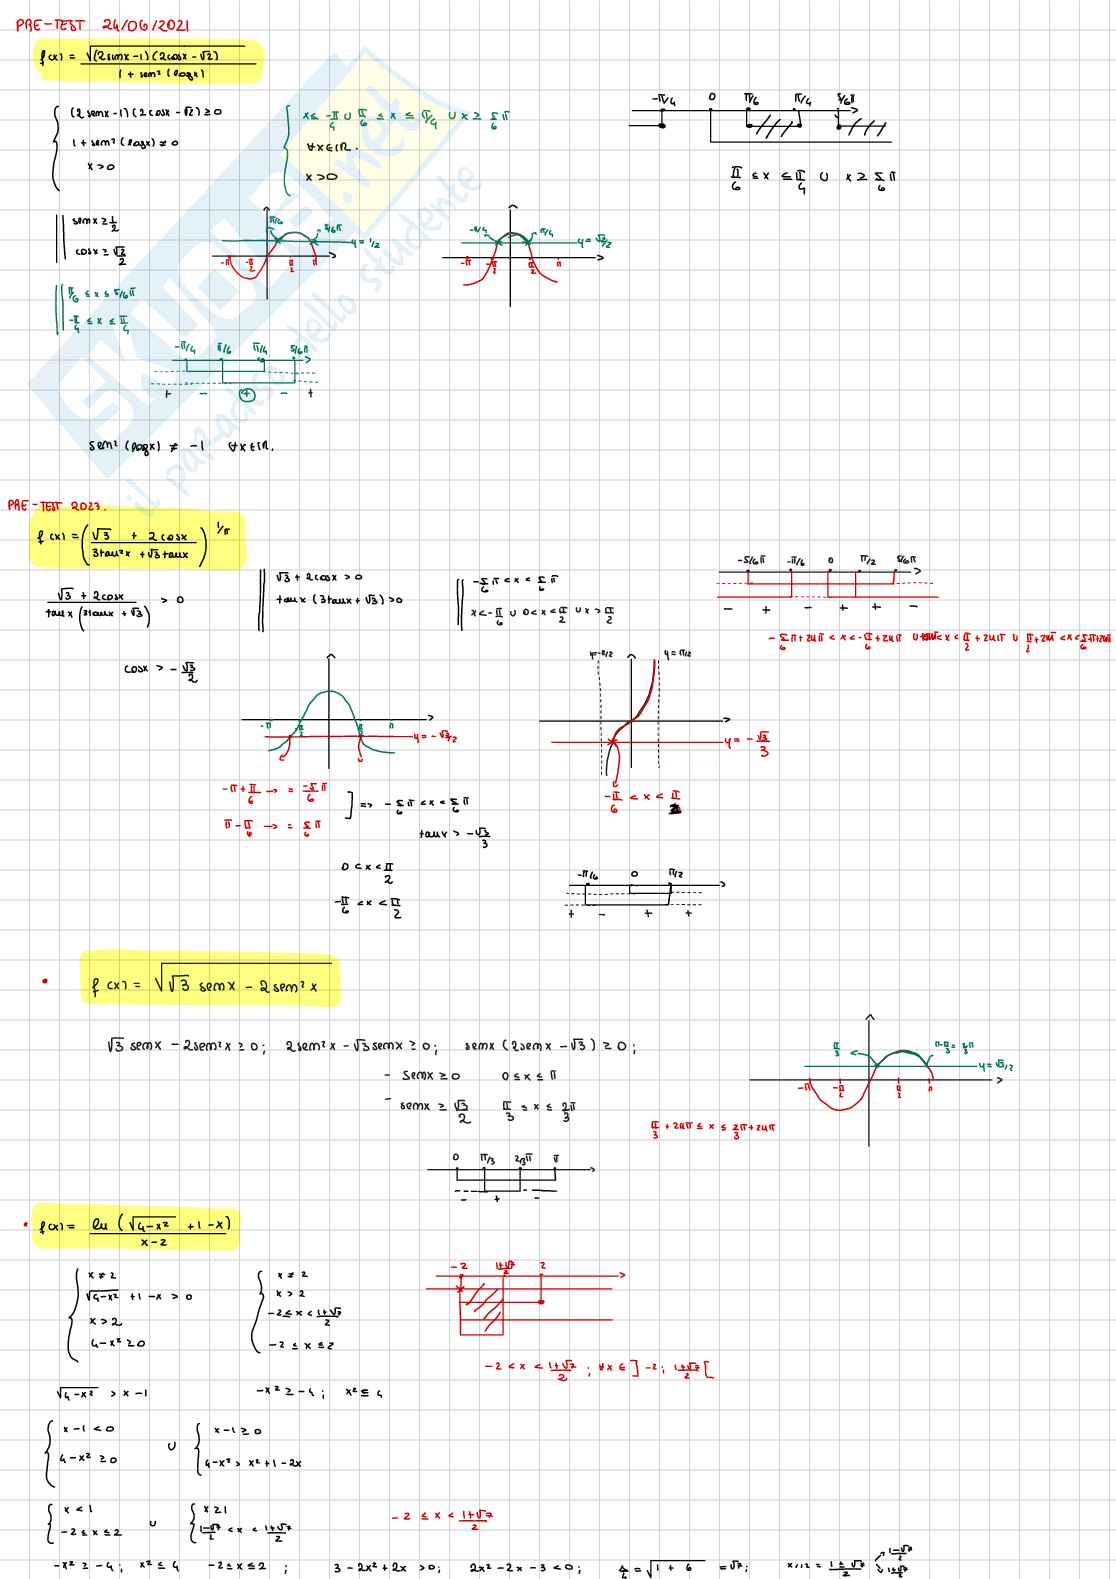 PRE-TEST 24/06/2021
f(x) = √((2senx-1)(2cosx-√2)) / (1+sen²(logx))
(2senx-1)(2cosx-√2) ≥ 0
1+sen²(logx) ≠ 0
x > 0
x ≤ -π/4 ∪ π/6 ≤ x ≤ π/4 ∪ x ≥ 5/6 π
∀x∈ℝ.
x > 0
-π/4 0 π/6 π/4 5/6π
π/6 ≤ x ≤ π/4 ∪ x ≥ 5/6 π
senx ≥ 1/2
cosx ≥ √2/2
π/6 5/6π y = 1/2
-π -π/2 π/2 π
-π/4 π/4 y = √2/2
-π -π/2 π/2 π
π/6 ≤ x ≤ 5/6π
-π/4 ≤ x ≤ π/4
-π/4 π/6 π/4 5/6π
+ - + - +
sen²(logx) ≠ -1 ∀x∈ℝ.
SKUOLA.net
il paradiso dello studente
PRE-TEST 2023.
f(x) = ((√3 + 2cosx) / (3tan²x + √3tanx))^1/π
(√3 + 2cosx) / (tanx(3tanx+√3)) > 0
√3 + 2cosx > 0
tanx(3tanx+√3) > 0
-5/6 π < x < 5/6 π
x < -π/6 ∪ 0 < x < π/2 ∪ x > π/2
-5/6π -π/6 0 π/2 5/6π
- + - + + -
-5/6 π+2kπ < x < -π/6+2kπ ∪ < x < π/2+2kπ ∪ π/2+2kπ < x < 5/6 π+2kπ
cosx > -√3/2
-π -π/2 π/2 π
y = -√3/2
y=-π/2 y = π/2
y = -√3/3
-π+π/6 → = -5/6 π
π-π/6 → = 5/6 π
=> -5/6 π < x < 5/6 π
-π/6 < x < π/2
tanx > -√3/3
0 < x < π/2
-π/6 < x < π/2
-π/6 0 π/2
+ - + +
f(x) = √(√3 senx - 2sen²x)
√3 senx - 2sen²x ≥ 0; 2sen²x - √3senx ≥ 0; senx(2senx-√3) ≥ 0;
- senx ≥ 0 0 ≤ x ≤ π
- senx ≥ √3/2 π/3 ≤ x ≤ 2π/3
π/3 π-π/3 = 2/3π
y = √3/2
-π -π/2 π/2 π
π/3 + 2kπ ≤ x ≤ 2π/3 + 2kπ
0 π/3 2/3π π
- + -
f(x) = ln(√(4-x²) + 1-x) / (x-2)
x ≠ 2
√(4-x²) + 1-x > 0
x > 2
4-x² ≥ 0
x ≠ 2
x > 2
-2 ≤ x < (1+√7)/2
-2 ≤ x ≤ 2
-2 (1+√7)/2 2
-2 < x < (1+√7)/2 ; ∀x∈ ]-2; (1+√7)/2[
√(4-x²) > x-1 -x² ≥ -4; x² ≤ 4
x-1 < 0
4-x² ≥ 0
∪
x-1 ≥ 0
4-x² > x²+1-2x
x < 1
-2 ≤ x ≤ 2
∪
x ≥ 1
(1-√7)/2 < x < (1+√7)/2
-2 ≤ x < (1+√7)/2
-x² ≥ -4; x² ≤ 4 -2 ≤ x ≤ 2 ; 3-2x²+2x > 0; 2x²-2x-3 < 0; Δ/4 = √(1+6) = √7; x1,2 = (1±√7)/2 (1-√7)/2 (1+√7)/2